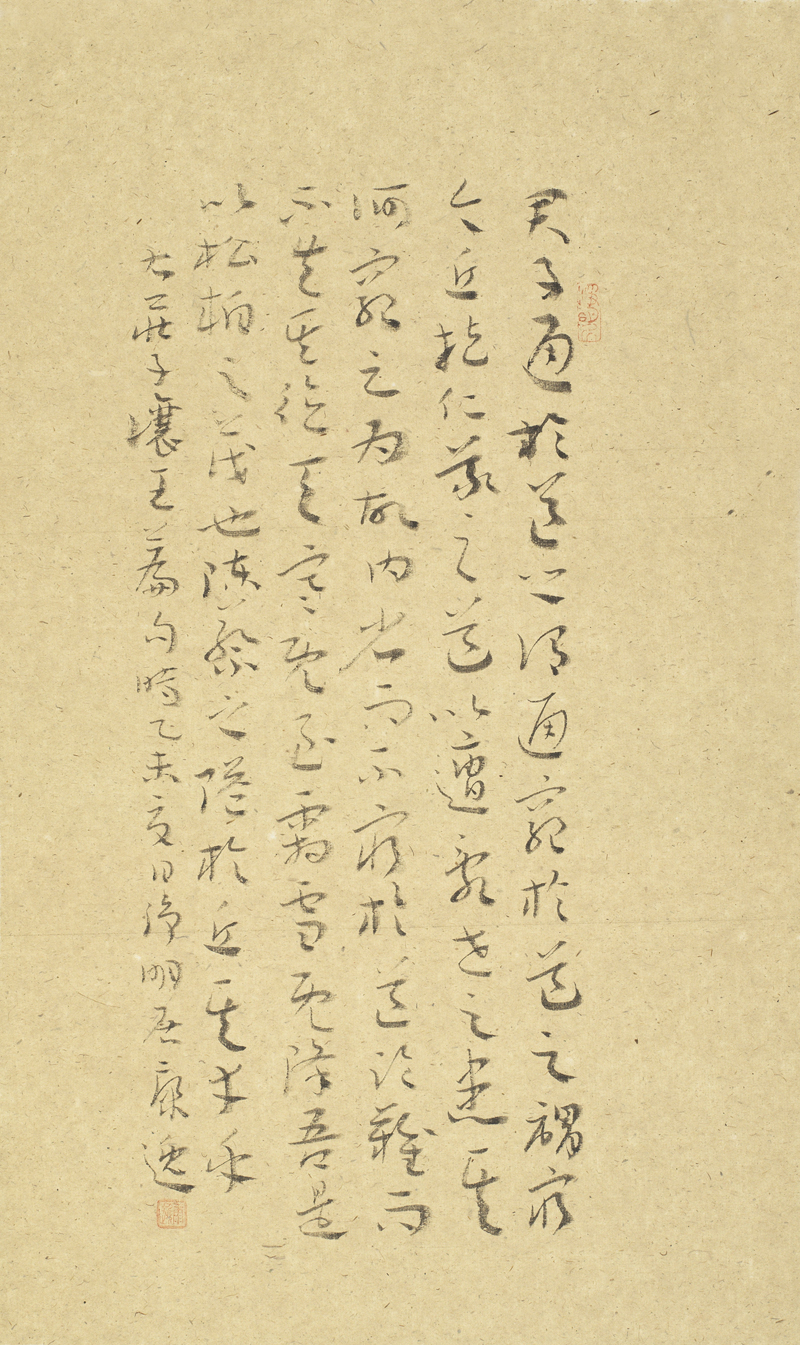 君子通於道之謂通窮於道之謂窮
今丘抱仁義之道以遭亂世之患其
何窮之為故内省而不窮於道臨難而
不失其德天寒既至霜雪既降吾是
以松柏之茂也陳蔡之隘於丘其幸乎
右莊子讓王篇句時乙未夏日淨明居康逸